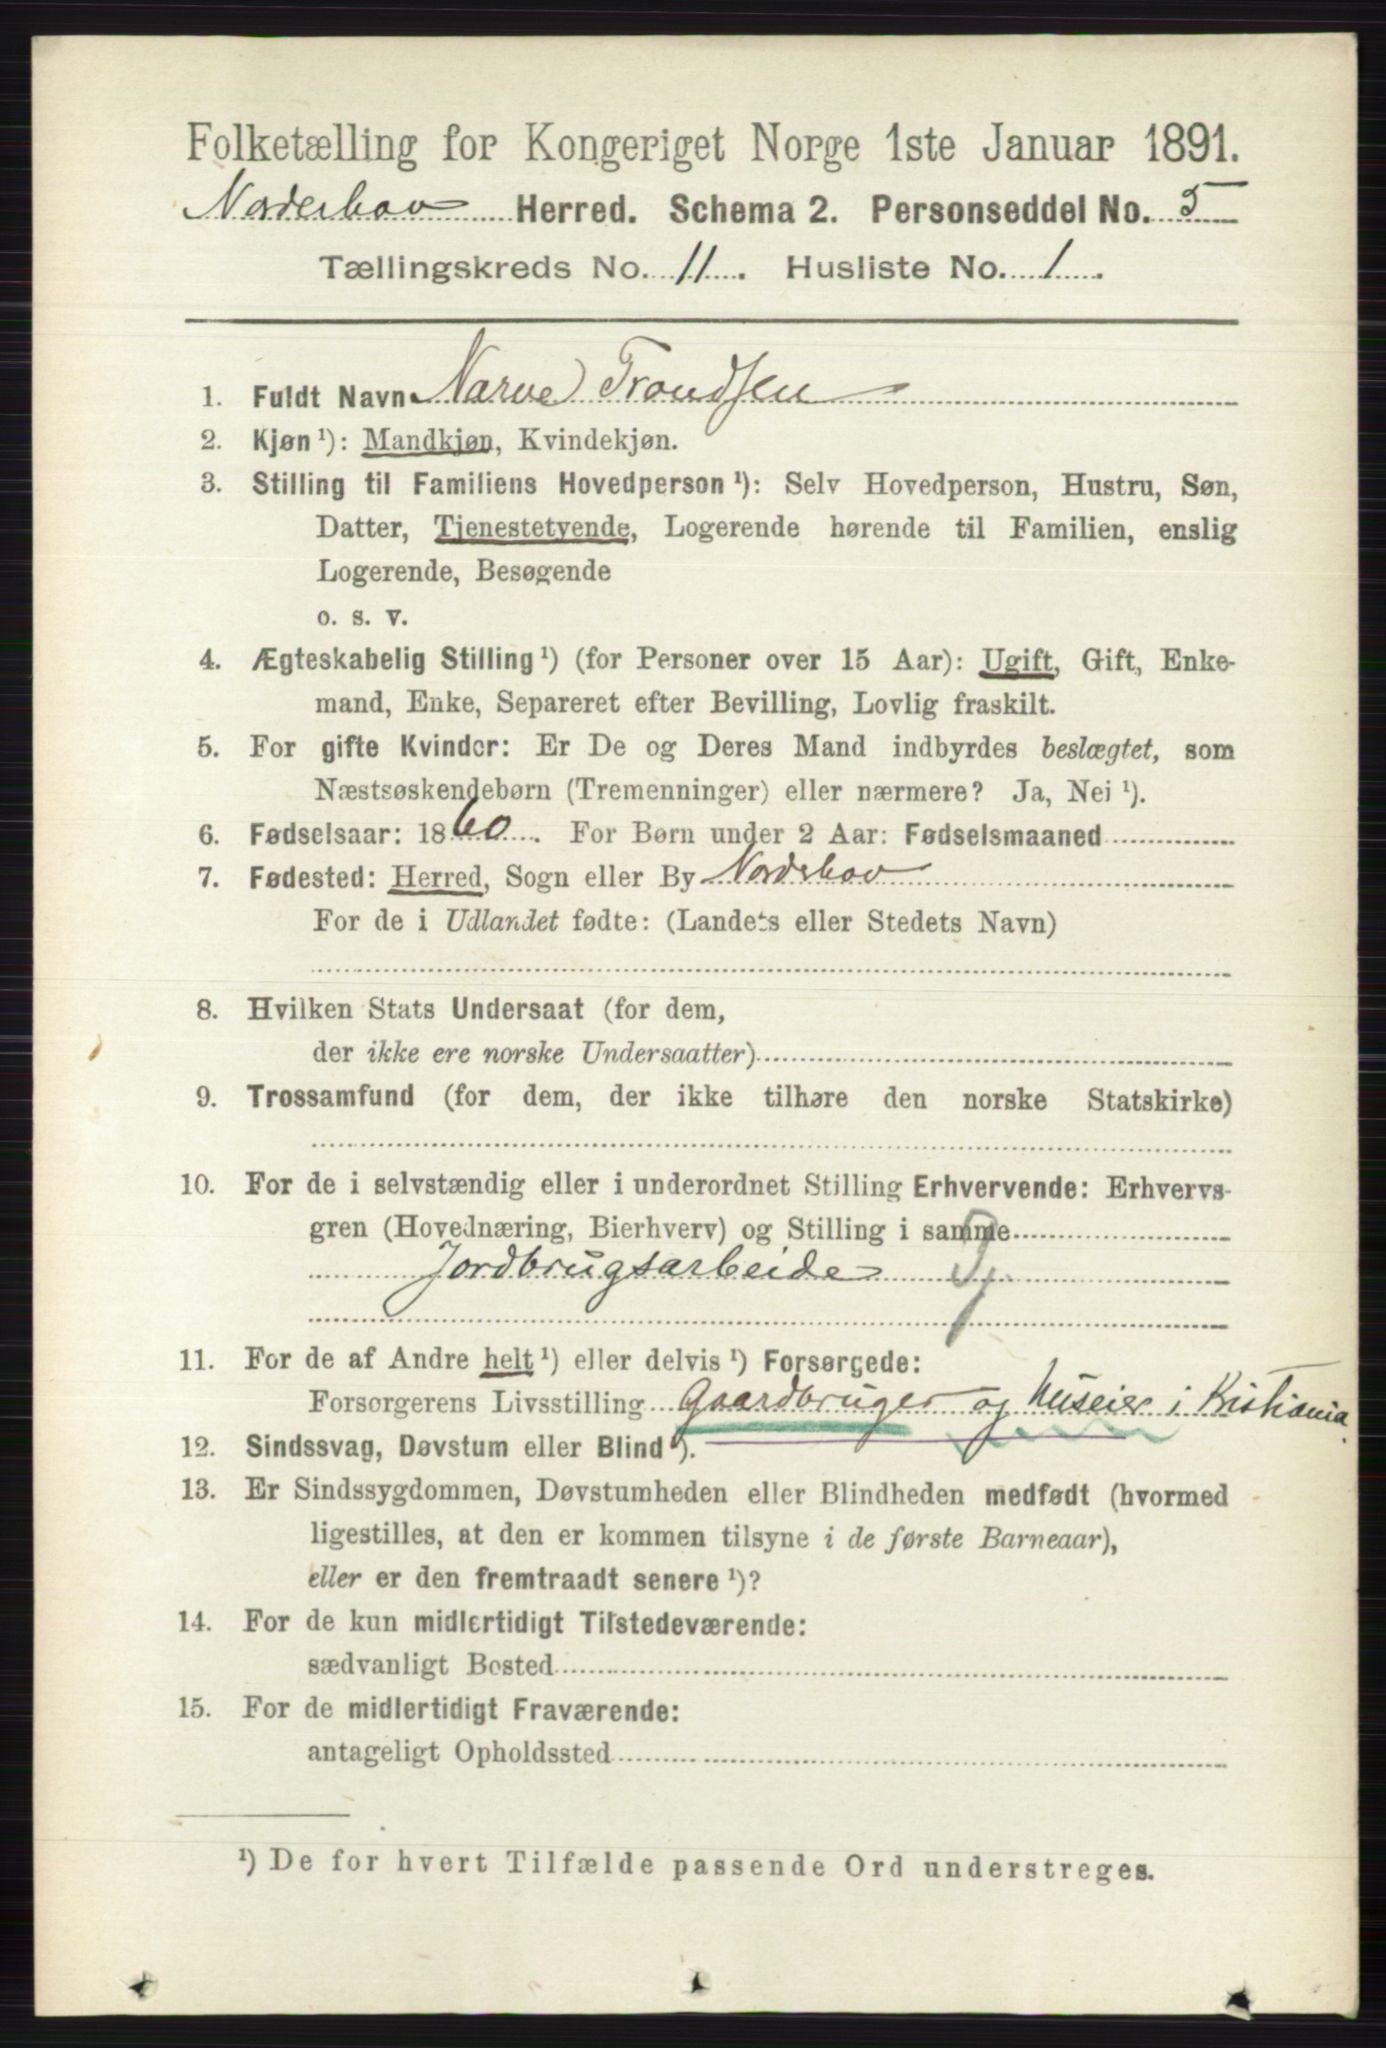 Folketælling for Kongeriget Norge 1ste Januar 1891.
Norderhov Herred. Schema 2. Personseddel No. 5
Tællingskreds No. 11. Husliste No. 1.
1. Fuldt Navn Narve Trondsen
2. Kjøn ¹): Mandkjøn, Kvindekjøn.
3. Stilling til Familiens Hovedperson ¹): Selv Hovedperson, Hustru, Søn,
Datter, Tjenestetyende, Logerende hørende til Familien, enslig
Logerende, Besøgende
o. s. v.
4. Ægteskabelig Stilling ¹) (for Personer over 15 Aar): Ugift, Gift, Enke-
mand, Enke, Separeret efter Bevilling, Lovlig fraskilt.
5. For gifte Kvinder: Er De og Deres Mand indbyrdes beslægtet, som
Næstsøskendebørn (Tremenninger) eller nærmere? Ja, Nei ¹).
6. Fødselsaar: 1860. For Børn under 2 Aar: Fødselsmaaned
7. Fødested: Herred, Sogn eller By Norderhov
For de i Udlandet fødte: (Landets eller Stedets Navn)
8. Hvilken Stats Undersaat (for dem,
der ikke ere norske Undersaatter)
9. Trossamfund (for dem, der ikke tilhøre den norske Statskirke)
10. For de i selvstændig eller i underordnet Stilling Erhvervende: Erhvervs-
gren (Hovednæring, Bierhverv) og Stilling i samme
Jordbrugsarbeide
11. For de af Andre helt ¹) eller delvis ¹) Forsørgede:
Forsørgerens Livsstilling Gaardbruger og Huseier i Kristiania.
12. Sindssvag, Døvstum eller Blind ¹).
13. Er Sindssygdommen, Døvstumheden eller Blindheden medfødt (hvormed
ligestilles, at den er kommen tilsyne i de første Barneaar),
eller er den fremtraadt senere ¹)?
14. For de kun midlertidigt Tilstedeværende:
sædvanligt Bosted
15. For de midlertidigt Fraværende:
antageligt Opholdssted
¹) De for hvert Tilfælde passende Ord understreges.